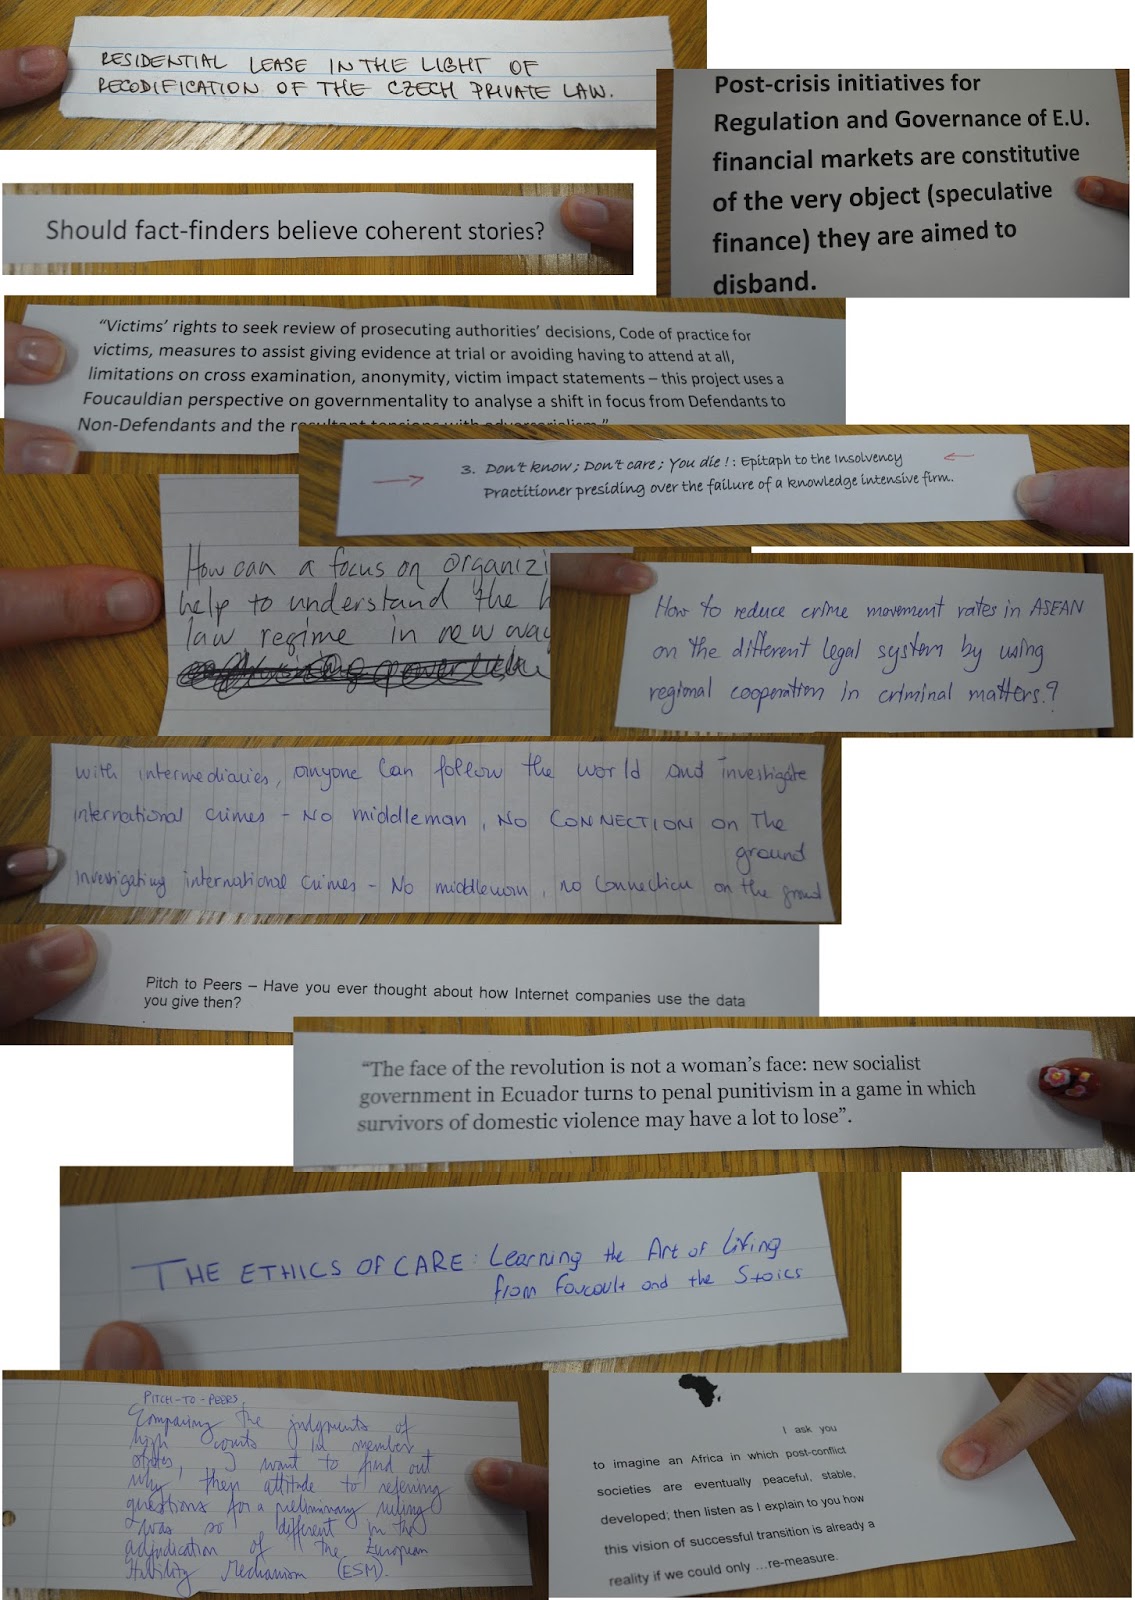 RESIDENTIAL LEASE IN THE LIGHT OF
RECODIFICATION OF THE CZECH PRIVATE LAW.
Post-crisis initiatives for
Regulation and Governance of E.U.
financial markets are constitutive
of the very object (speculative
finance) they are aimed to
disband.
Should fact-finders believe coherent stories?
"Victims' rights to seek review of prosecuting authorities' decisions, Code of practice for
victims, measures to assist giving evidence at trial or avoiding having to attend at all,
limitations on cross examination, anonymity, victim impact statements – this project uses a
Foucauldian perspective on governmentality to analyse a shift in focus from Defendants to
Non-Defendants and the resultant tensions with adversarialism."
3. Don't know; Don't care; You die!: Epitaph to the Insolvency
Practitioner presiding over the failure of a knowledge intensive firm.
How can a focus on organizi
help to understand the h
law regime in new way
How to reduce crime movement rates in ASEAN
on the different legal system by using
regional cooperation in criminal matters.?
with intermediaries, anyone can follow the world and investigate
international crimes - NO middleman, NO CONNECTION on The
ground
Investigating international crimes - No middleman, no connection on the ground
Pitch to Peers – Have you ever thought about how Internet companies use the data
you give then?
"The face of the revolution is not a woman's face: new socialist
government in Ecuador turns to penal punitivism in a game in which
survivors of domestic violence may have a lot to lose".
THE ETHICS OF CARE: Learning the Art of Living
from Foucault and the Stoics
PITCH-TO-PEERS
Comparing the judgments of
high courts in member
states, I want to find out
why their attitude to referring
questions for a preliminary ruling
was so different in the
adjudication of the European
Stability Mechanism (ESM).
I ask you
to imagine an Africa in which post-conflict
societies are eventually peaceful, stable,
developed; then listen as I explain to you how
this vision of successful transition is already a
reality if we could only ...re-measure.